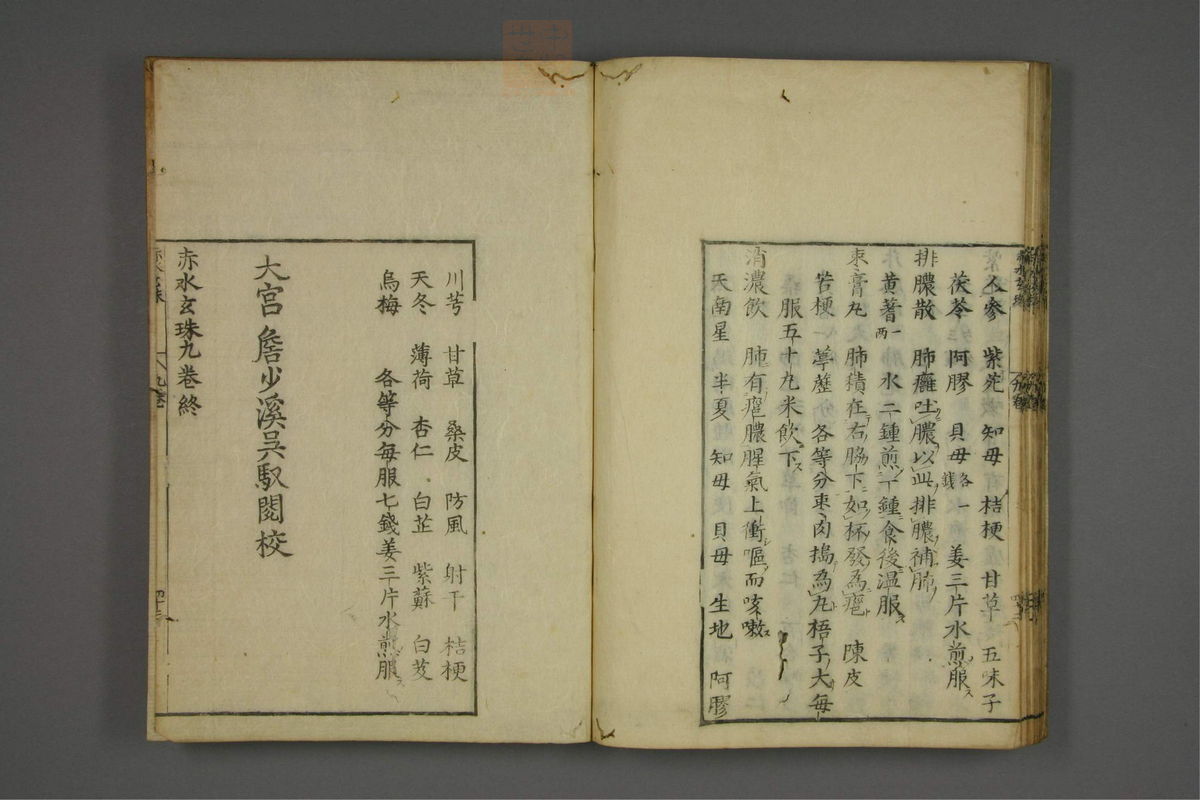 人參　紫菀　知母　桔梗　甘草　五味子
茯苓　阿膠　貝母各一錢　姜三片水煎服ス
排膿散　肺癰吐膿以此排膿補肺
黄蓍一兩　水二鍾煎一鍾食後温服ス
棗膏丸　肺積在右脇下如杯發為癰　陳皮
苦梗　葶藶各等分棗肉搗為丸梧子大每
服五十丸米飲下ス
消濃飲　肺有癰膿腥氣上衝嘔而咳嗽ス
天南星　半夏　知母　貝母　生地　阿膠
川芎　甘草　桑皮　防風　射干　桔梗
天冬　薄荷　杏仁　白芷　紫蘇　白芨
烏梅　各等分每服七錢姜三片水煎服ス
大宮　詹少溪吳馭閱校
赤水玄珠九卷終